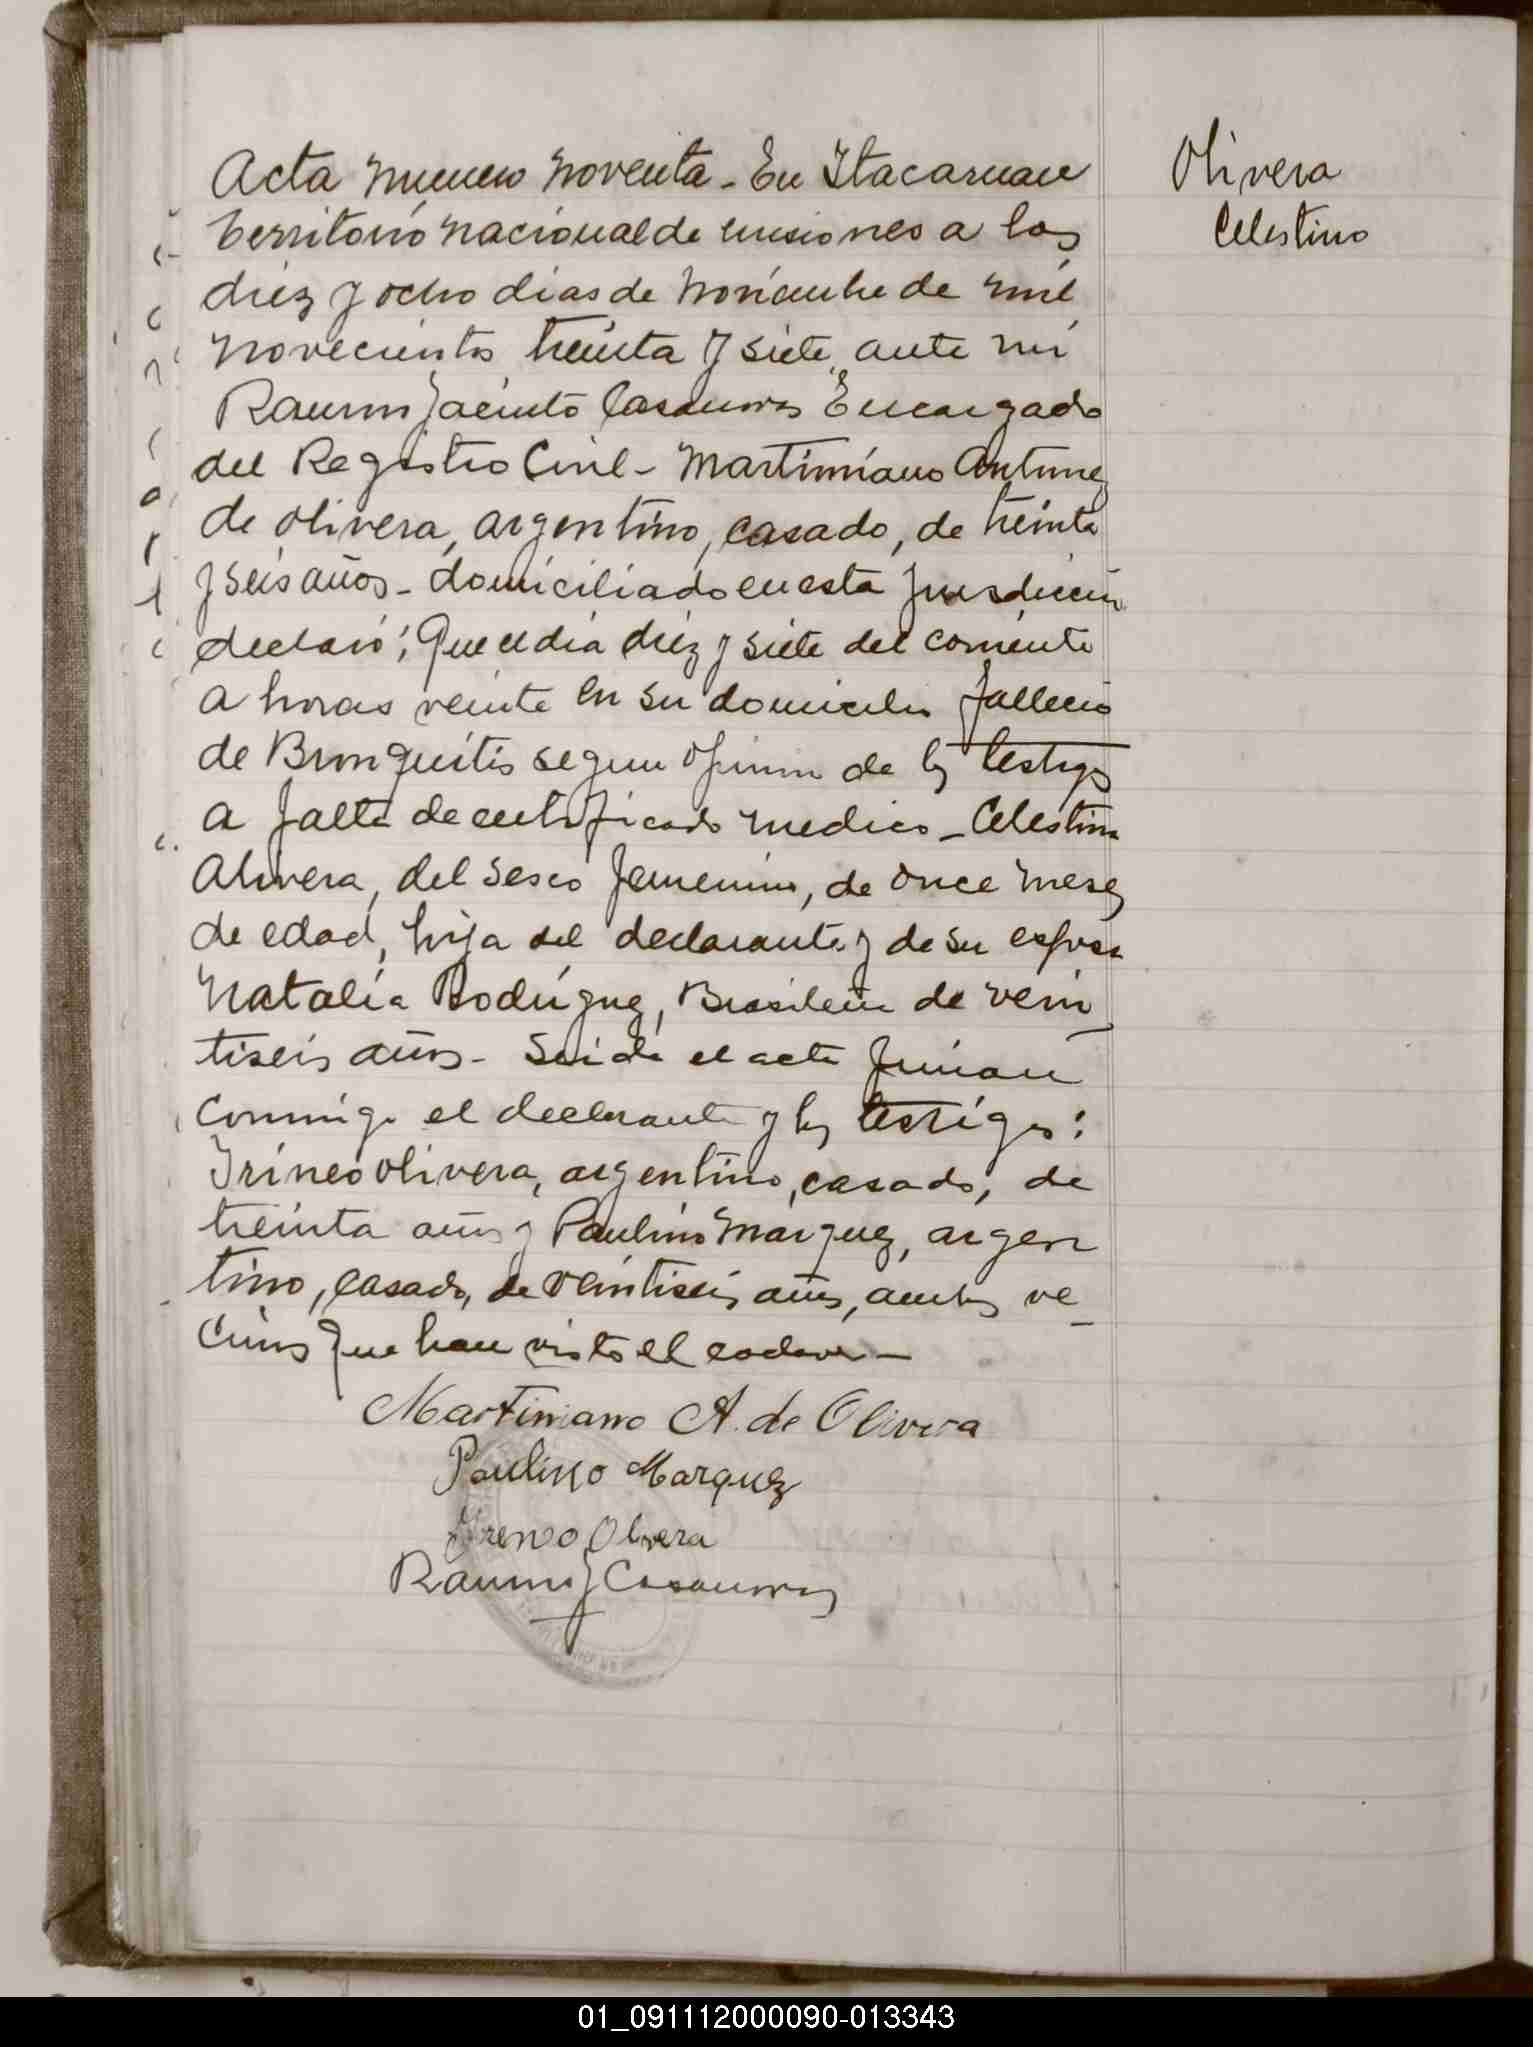 Acta Numero Noventa - En Itacaruare
territorio nacional de misiones a los
diez y ocho dias de Noviembre de mil
novecientos treinta y siete, ante mi
Ramon Jacinto Casamora Encargado
del Registro Civil - Martimiano Antunez
de Olivera, argentino, casado, de treinta
y seis años - domiciliado en esta jurisdiccion
declaró; Que el dia diez y siete del corriente
a horas veinte en su domicilio fallecio
de Bronquitis segun opinion de los testigos
a falta de certificado medico - Celestina
Olivera, del sexo femenino, de once meses
de edad, hija del declarante y de su esposa
Natalia Rodriguez, Brasilera de vein
tiseis años - Leida el acta firman
conmigo el declarante y los testigos:
Irineo Olivera, argentino, casado, de
treinta años y Paulino Marquez, argen
tino, casado, de veintiseis años, ambos ve_
cinos que han visto el cadaver -
Martimiano A. de Olivera
Paulino Marquez
Ireneo Olivera
Ramon J Casamora
Olivera
Celestino
01_091112000090-013343